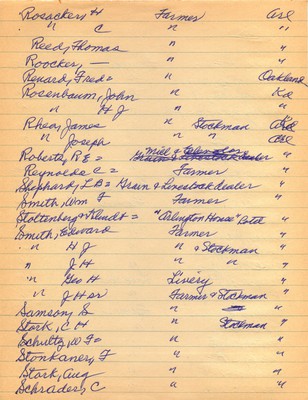 Rosacker, H Farmer Arl
" C " "
Reed, Thomas " "
Roocker, — " "
Renard, Fred = " Oakland
Rosenbaum, John " Ko
" H J " "
Rhea, James " Stockman Arl
" Joseph " " Arl
Roberts, R E = Grain & Livestock dealer "
Reynolds C = Farmer "
Shephard, L B = Grain & Livestock dealer "
Smith, Wm F Farmer "
Stoltenberg & Klaudt = "Arlington House" Hotel "
Smith, Edward Farmer "
" H J " & Stockman "
" J H " " "
" Geo H Livery "
" J H sr Farmer & Stockman "
Samson, G " "
Stork, C H " Stockman "
Schultz, W F = " "
Stonkaner, F " "
Stork, Aug " "
Schrader, C " "